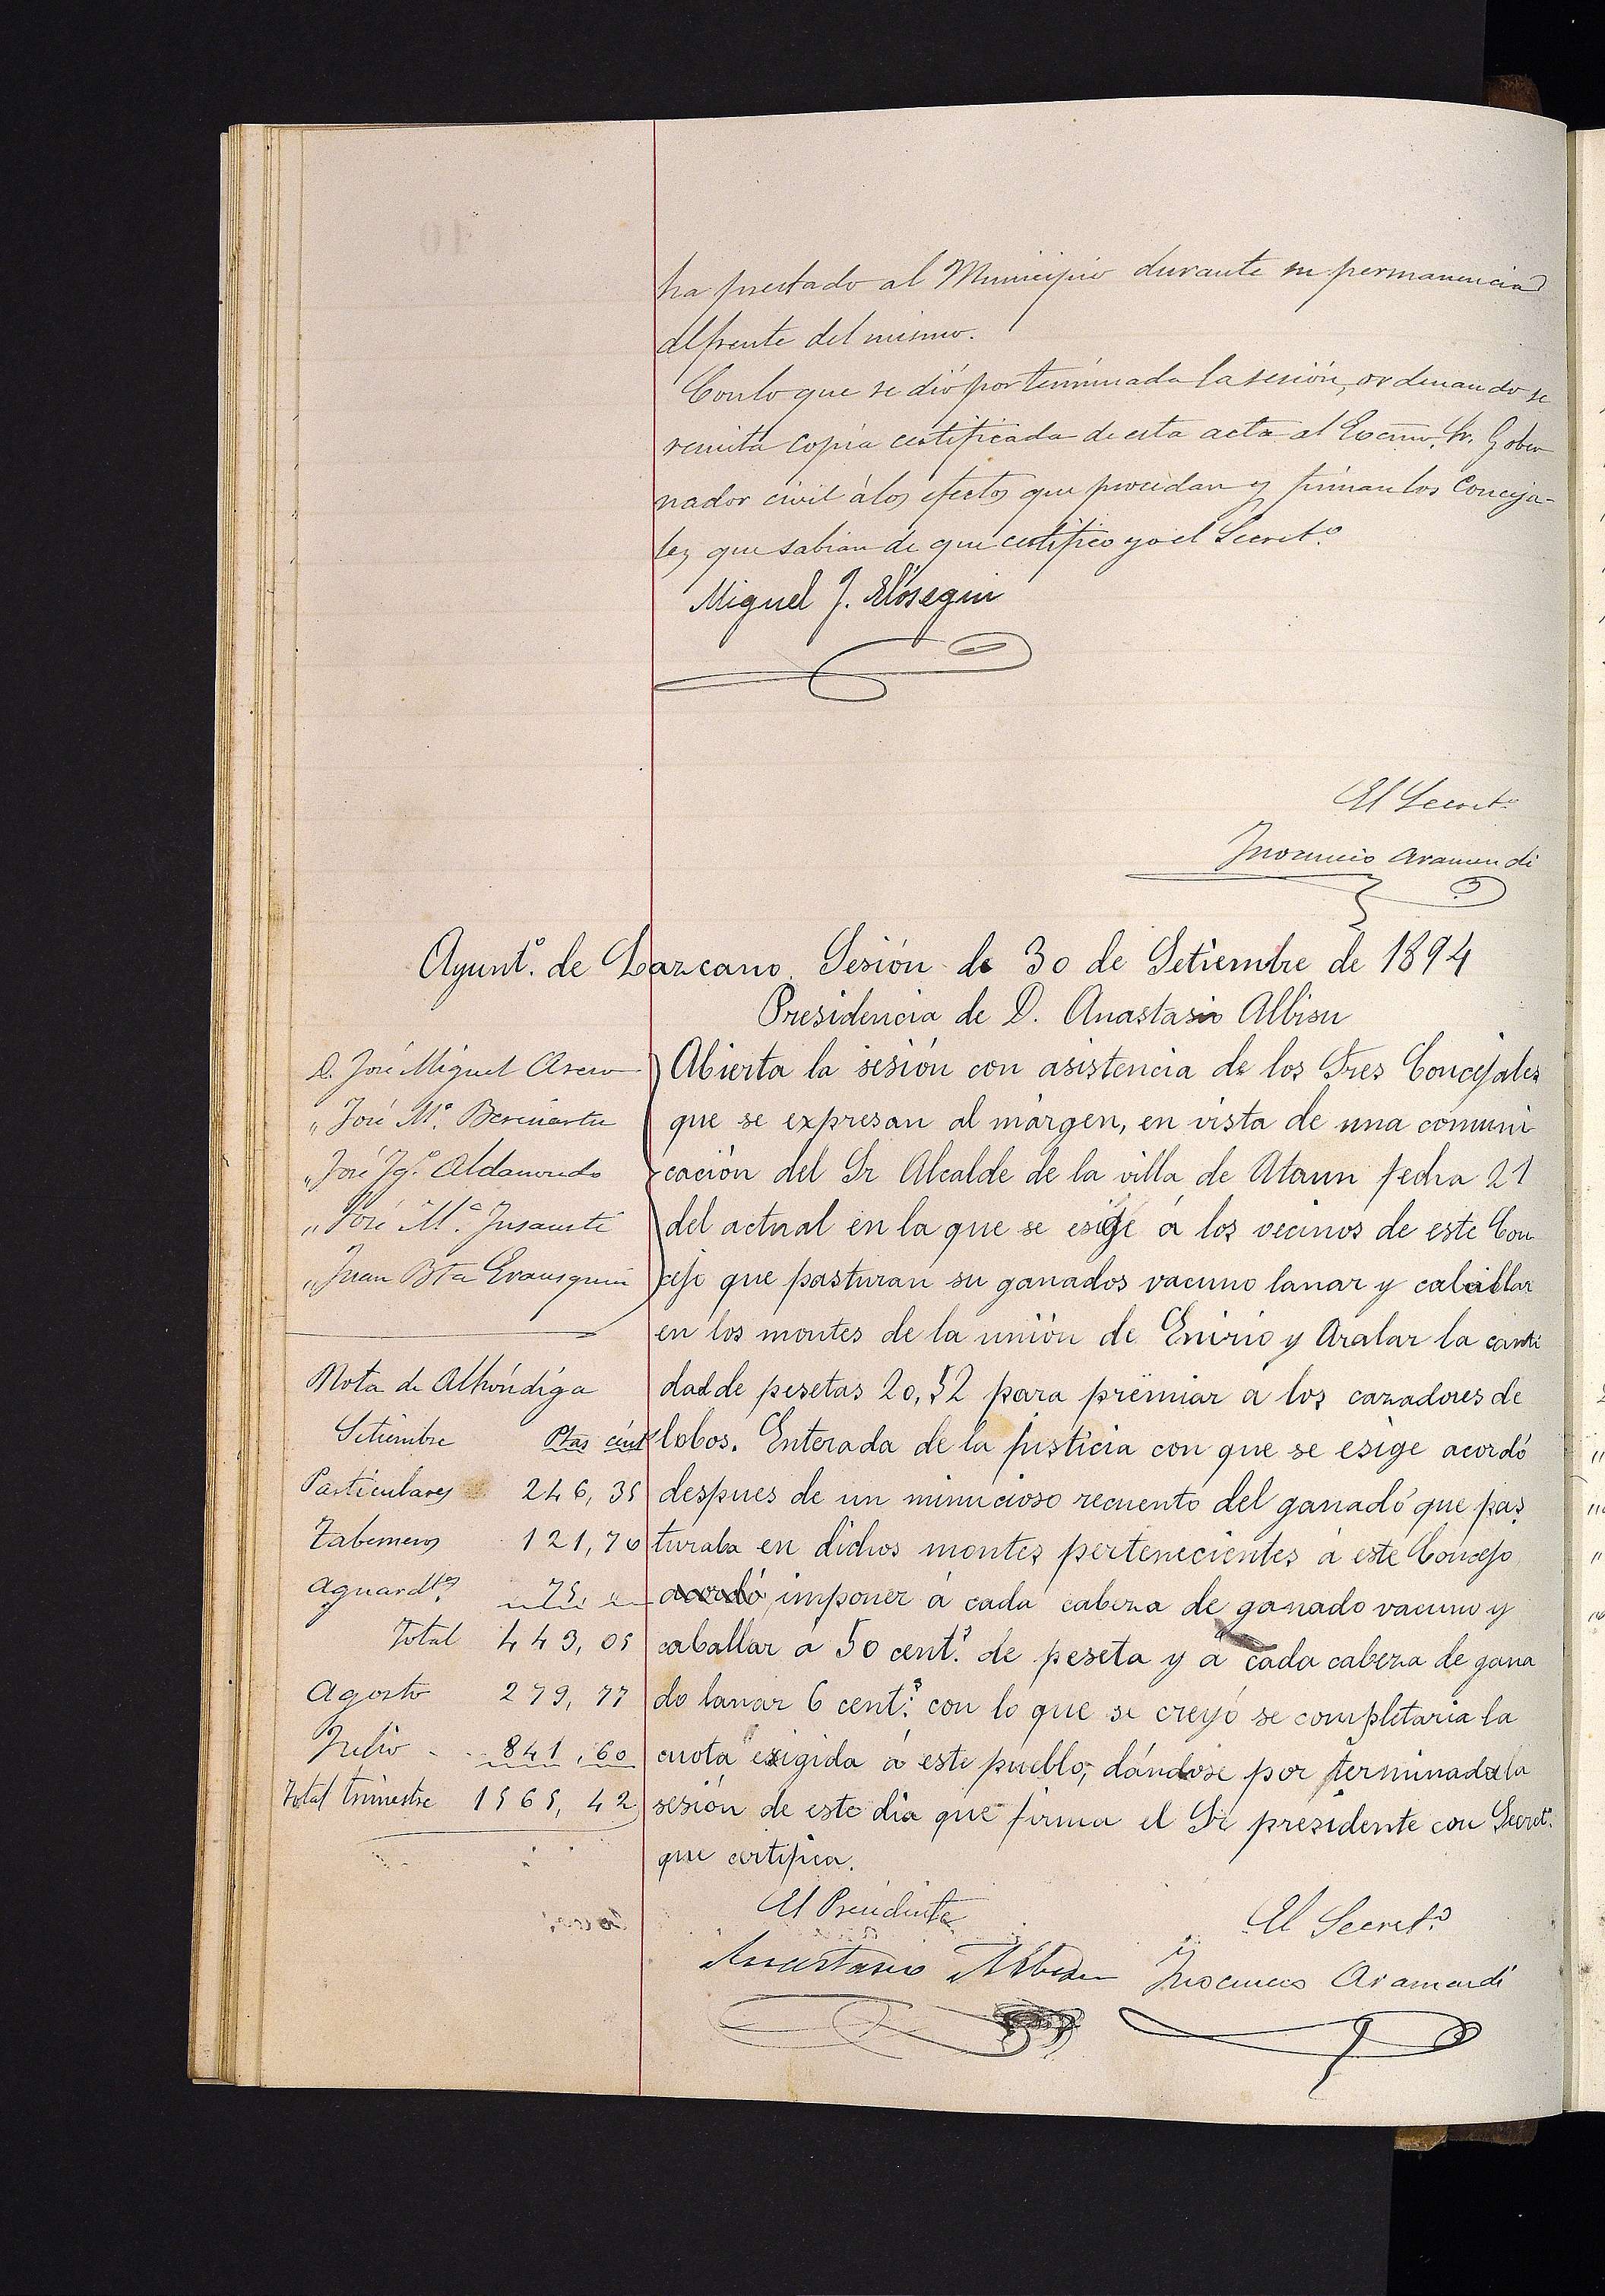 ha prestado al Municipio durante su permanencia
al frente del mismo.
Con lo que se dió por terminada la sesión, ordenando se
remita copia certificada de esta acta al Excmo. Sr. Gober
nador civil á los efectos que procedan y firman los Conceja-
les que sabian de que certifico yo el Secretº
Miguel J. Elósegui
El Secretº
Inocencio Aramendi
Ayuntº. de Lazcano. Sesión de 30 de Setiembre de 1894
Presidencia de D. Anastasio Albisu
D. José Miguel
" José Mª.
" José Igº. Aldamondo
" José Mª. Insausti
" Juan Bta Erausquin
Abierta la sesión con asistencia de los Sres Concejales
que se expresan al márgen, en vista de una comuni
cación del Sr Alcalde de la villa de Ataun fecha 21
del actual en la que se esige á los vecinos de este Con
cejo que pasturan su ganados vacuno lanar y caballar
en los montes de la unión de Enirio y Aralar la canti
dad de pesetas 20,52 para premiar a los cazadores de
lobos. Enterada de la justicia con que se esige acordó
despues de un minucioso recuento del ganadó que pas
turaba en dichos montes pertenecientes á este Concejo
acordó imponer á cada cabeza de ganado vacuno y
caballar á 50 cent.s de peseta y á cada cabeza de gana
do lanar 6 cent.s con lo que se creyó se completaria la
cuota exigida á este pueblo, dándose por terminada la
sesión de este dia que firma el Sr presidente con Secretº.
que certifica.
Nota de Alhóndiga
Setiembre Ptas cént
Particulares 246,35
Taberneros 121,70
Aguardtes 75, "
Total 443,05
Agosto 279,77
Julio - .. 841,60
Total trimestre 1565,42
El Presidente
Anastasio Albisu
El Secretº
Inocencio Aramendi